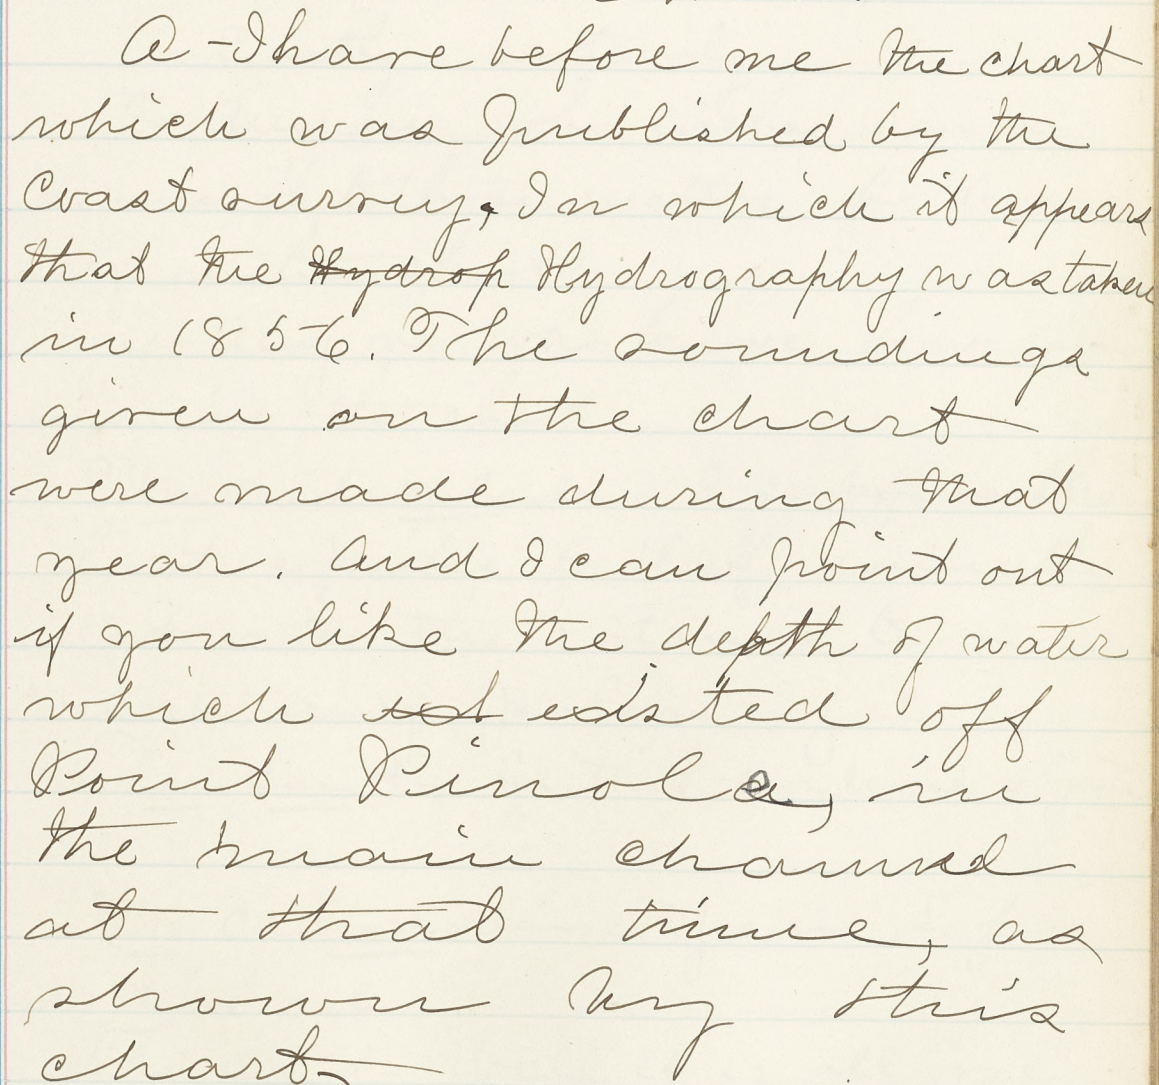 A - I have before me the chart
which was published by the
Coast survey, In which it appears
that the Hydrop Hydrography was taken
in 1856. The soundings
given on the chart
were made during that
year. And I can point out
if you like the depth of water
which existed off
Point Pinole, in
the main channel
at that time, as
shown by this
chart